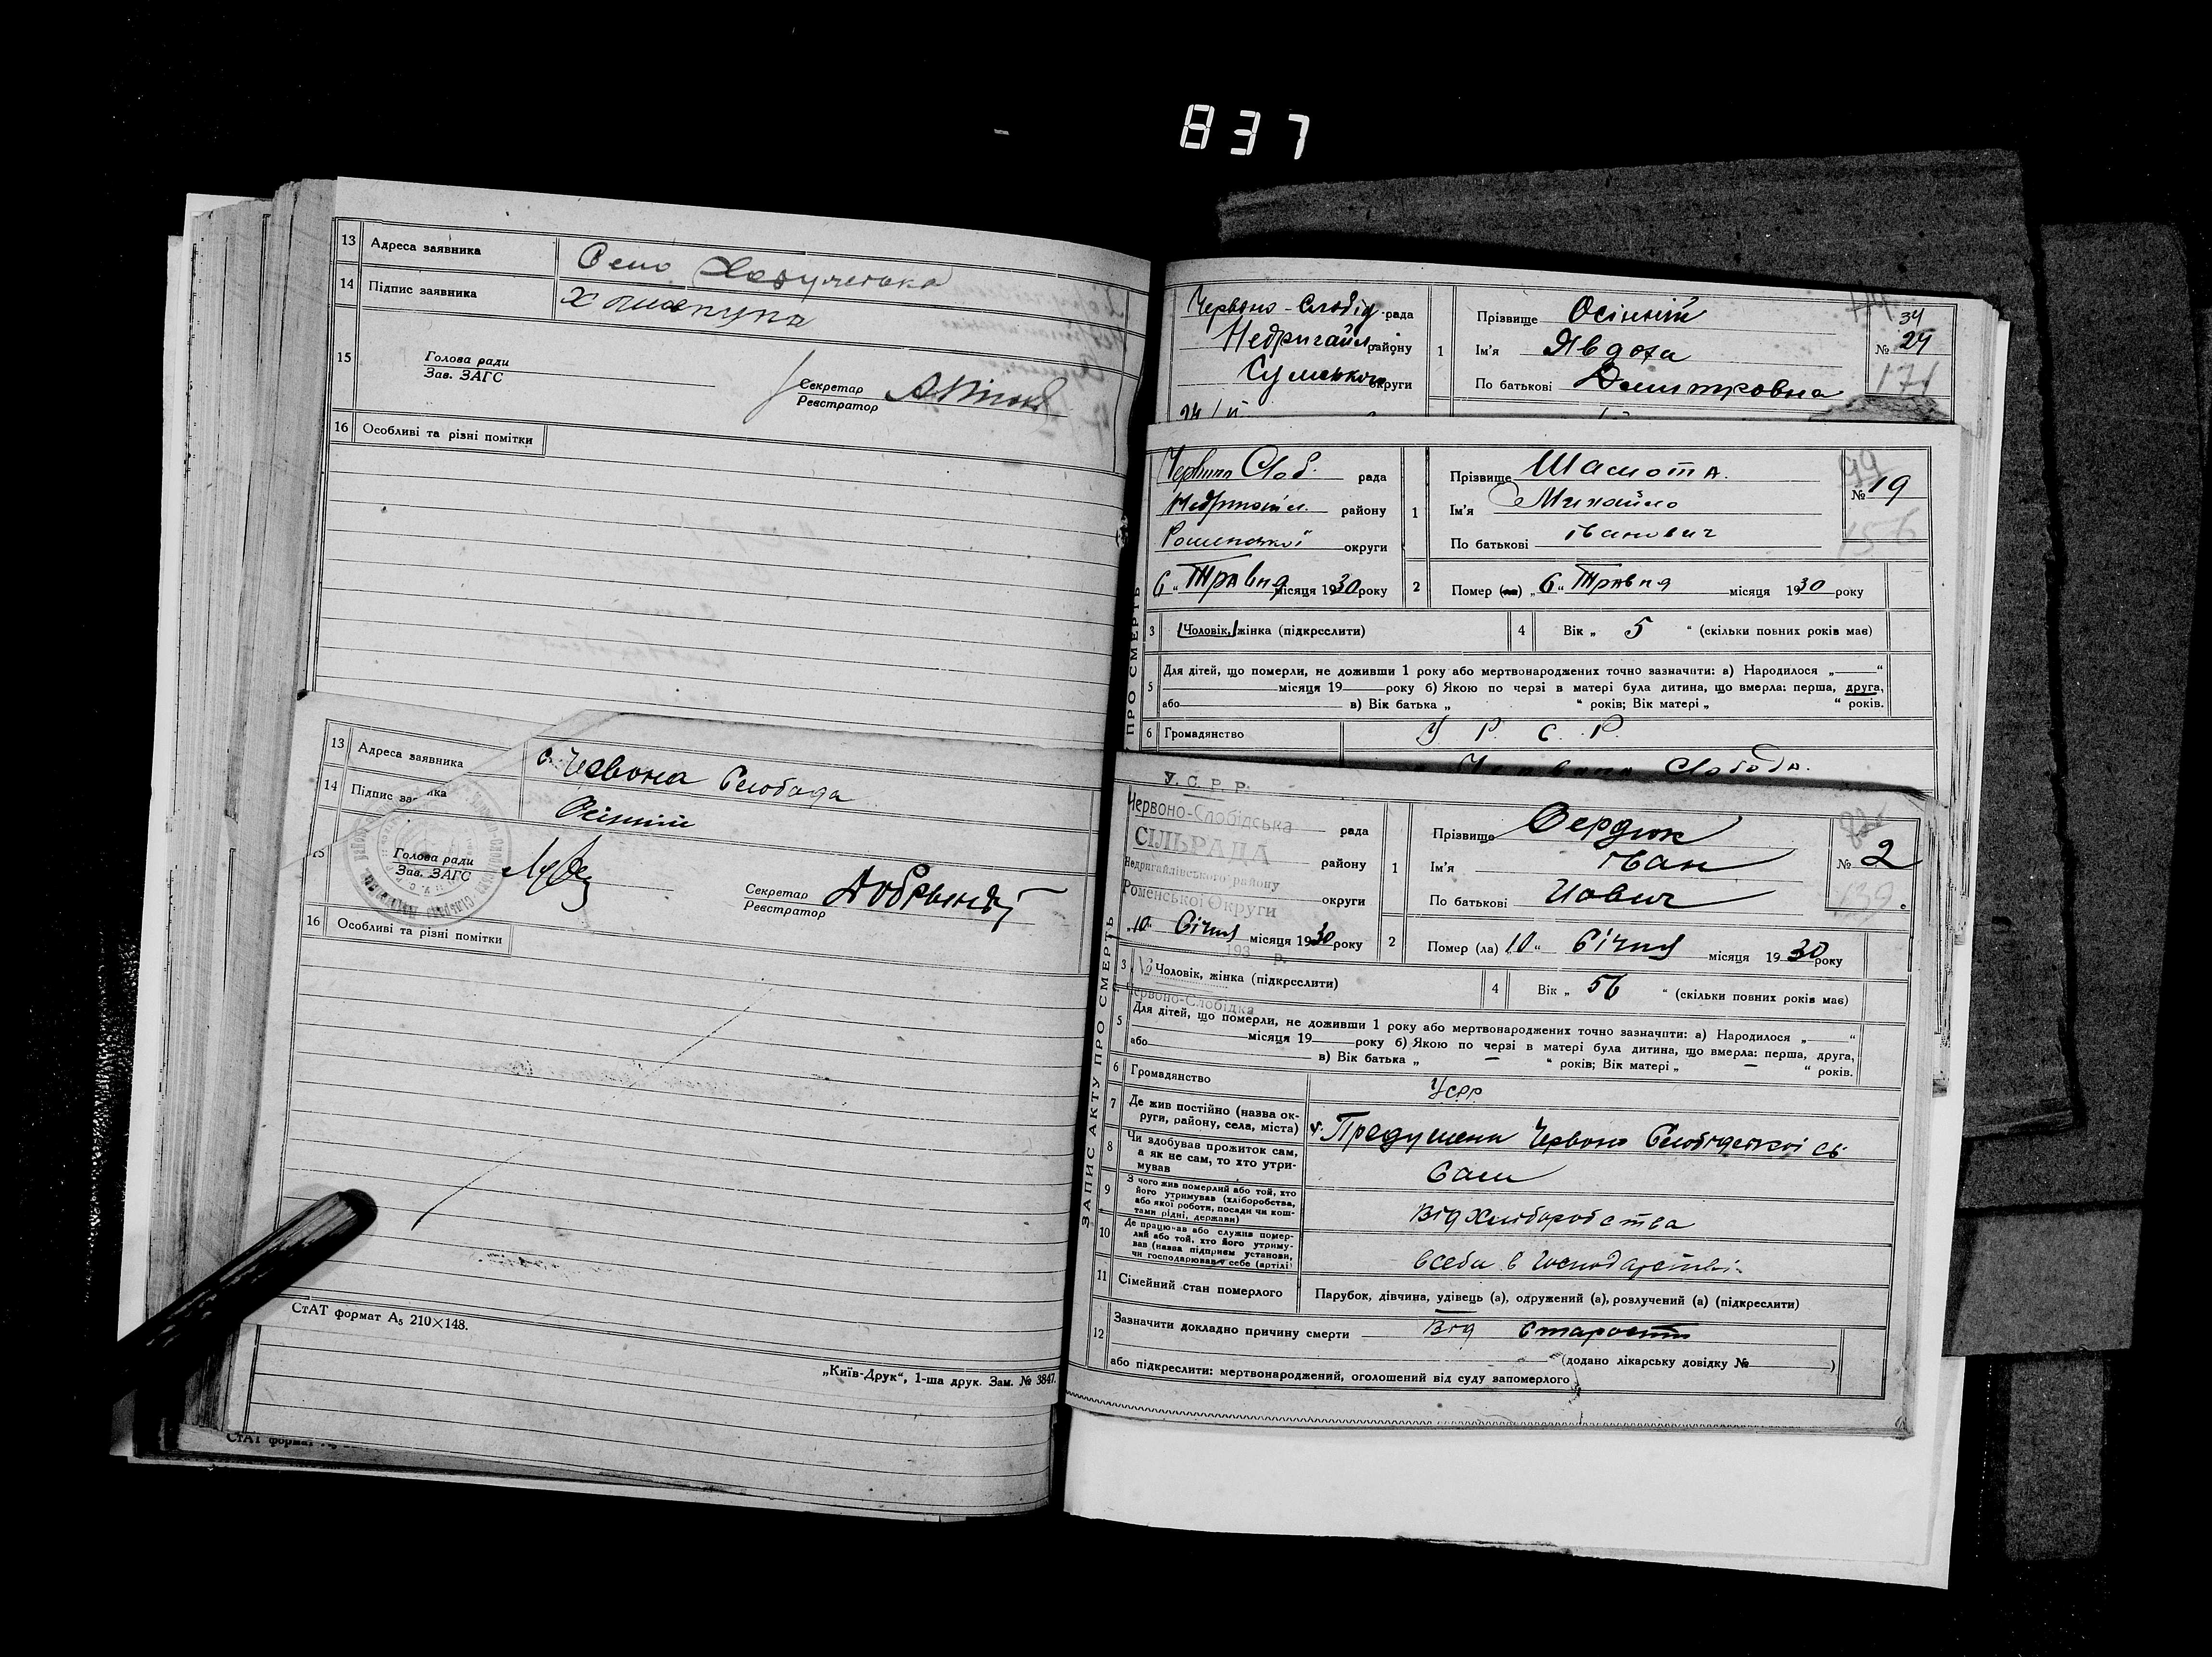 837
13 Адреса заявника Село
14 Підпис заявника
15 Голова ради
Зав. ЗАГС
Секретар
Реєстратор
16 Особливі та різні помітки
13 Адреса заявника с. Червона Слобода
14 Підпис за ника Осінній
15 Голова ради
Зав. ЗАГС
Секретар
Реєстратор
16 Особливі та різні помітки
СтАТ формат А5 210×148.
„Київ-Друк“, 1-ша друк. Зам. № 3847.
СтАТ формат
Червоно-Слобід. рада
Недригайл. району
Сумського округи
1 Прізвище Осінній
Ім'я Явдоха
По батькові Дмитровна
34
№ 24
171
Червоно Слоб. рада
Недригайл. району
Роменської округи
6 „ Травня місяця 1930 року
1 Прізвище Шамота.
Ім'я Михайло
По батькові іванович
99
№ 19
156
2 Помер (ла) „6“ Травня місяця 1930 року
3 Чоловік, жінка (підкреслити)
4 Вік „ 5 “ (скільки повних років має)
5 Для дітей, що померли, не доживши 1 року або мертвонароджених точно зазначити: а) Народилося „ “
місяця 19 року б) Якою по черзі в матері була дитина, що вмерла: перша, друга,
або в) Вік батька „ “ років; Вік матері „ “ років.
6 Громадянство У Р. С. Р.
Червона Слобода.
ПРО СМЕРТЬ
У. С. Р. Р.
Червоно-Слобідська рада
СІЛЬРАДА району
Недригайлівського району
Роменської Округи округи
„10“ Січня місяця 1930 року
193 р.
Червоно-Слобідка
1 Прізвище Сердюк
Ім'я іван
По батькові Иович
№ 2
139.
2 Помер (ла) 10 “ Січня місяця 1930 року
3 Чоловік, жінка (підкреслити)
4 Вік „ 56 “ (скільки повних років має)
5 Для дітей, що померли, не доживши 1 року або мертвонароджених точно зазначити: а) Народилося „ “
місяця 19 року б) Якою по черзі в матері була дитина, що вмерла: перша, друга,
або в) Вік батька „ — “ років; Вік матері „ — “ років.
6 Громадянство УСРР
7 Де жив постійно (назва округи, району, села, міста) Червоно Слобідської
8 Чи вдобував прожиток сам, а як не сам, то хто утримував Сам
9 З чого жив померлий або той, хто його утримував (хліборобства, або якої роботи, посади чи коштами рідні, держави) Від Хліборобства
10 Де працював або служив померлий або той, хто його утримував (назва підприєм установи, чи господарював у себе (артілі) всеби в господарстві
11 Сімейний стан померлого Парубок, дівчина, удівець (а), одружений (а), розлучений (а) (підкреслити)
12 Зазначити докладно причину смерти Від старости
(додано лікарську довідку № )
або підкреслити: мертвонароджений, оголошений від суду запомерлого
ЗАПИС АКТУ ПРО СМЕРТЬ